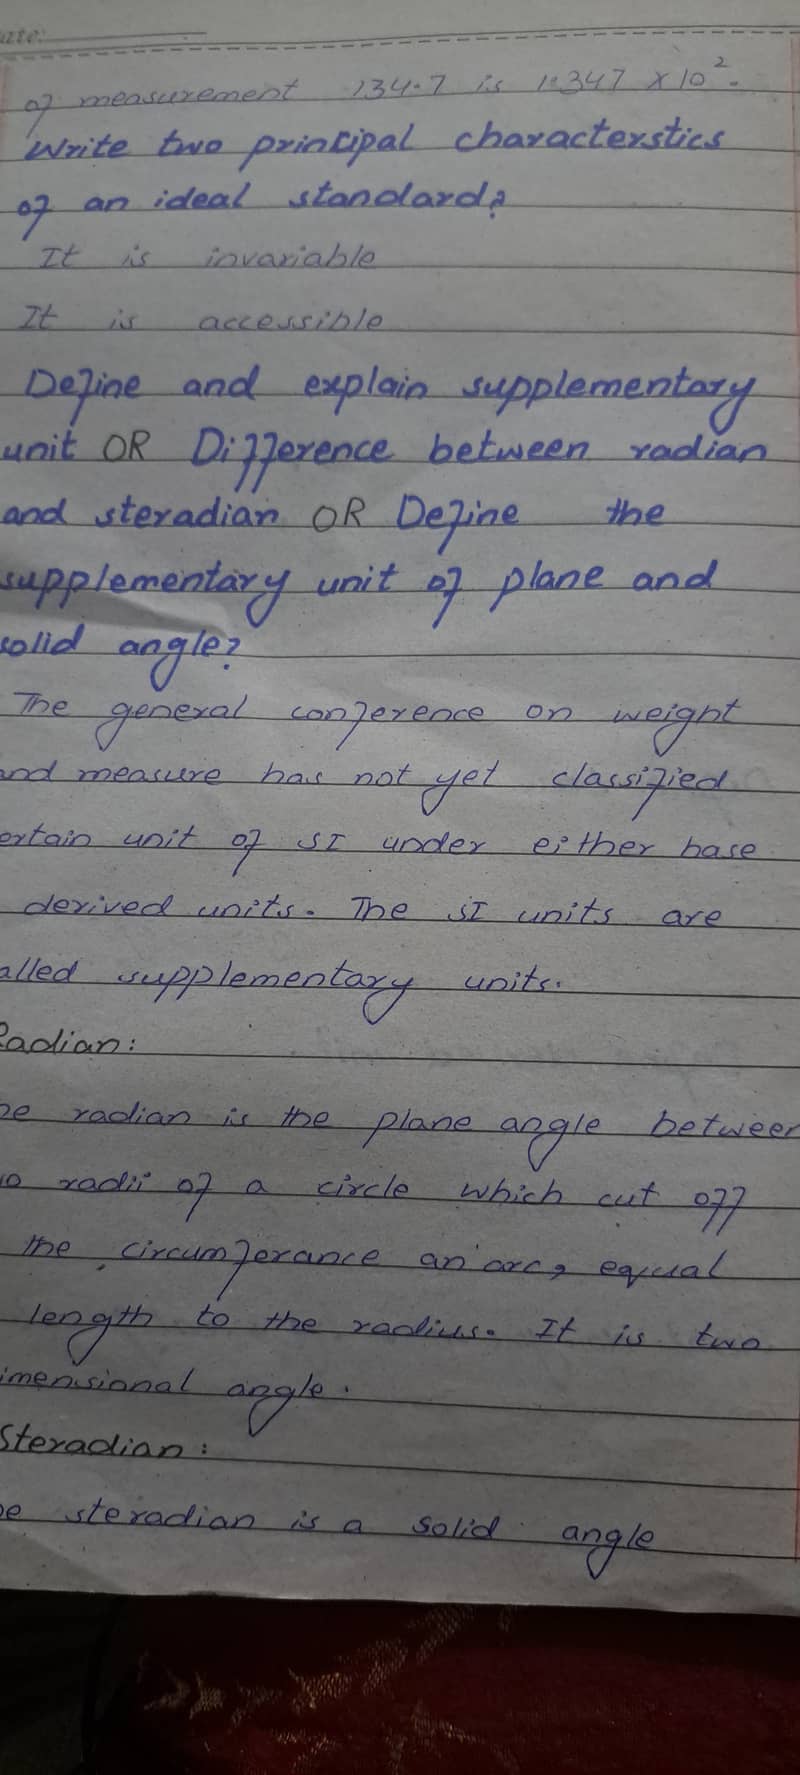 ate:
of measurement 134.7 is 1.347 x 10².
Write two principal characterstics
of an ideal standard?
It is invariable
It is accessible
Define and explain supplementary
unit OR Difference between radian
and steradian OR Define the
supplementary unit of plane and
solid angle?
The general conference on weight
and measure has not yet classified
ertain unit of SI under either base
derived units. The SI units are
alled supplementary units.
Radian:
he radian is the plane angle between
wo radii of a circle which cut off
the circumferance an arc, equal
length to the radius. It is two
imensional angle.
Steradian:
he steradian is a solid angle